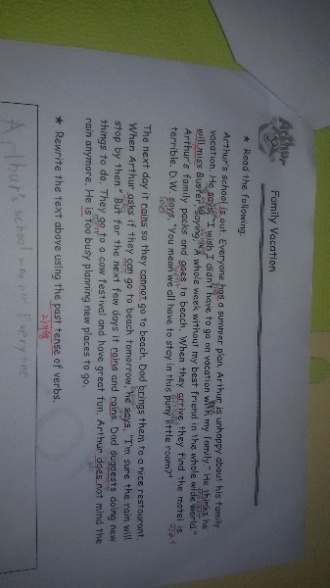 Arthur
Family Vacation
★ Read the following.
Arthur's school is out. Everyone has a summer plan. Arthur is unhappy about his family
vacation. He says, "I wish I didn't have to go on vacation with my family." He thinks he
will miss Buster. a whole week without my best friend in the whole wide world."
Arthur's family packs and goes to beach. When they arrive, they find the motel is
terrible. D.W. says, "You mean we all have to stay in this puny little room?"
The next day it rains so they cannot go to beach. Dad brings them to a nice restaurant.
When Arthur asks if they can go to beach tomorrow, he says, "I'm sure the rain will
stop by then." But for the next few days it rains and rains. Dad suggests doing new
things to do. They go to a cow festival and have great fun. Arthur does not mind the
rain anymore. He is too busy planning new places to go.
★ Rewrite the text above using the past tense of verbs.
Arthur's school was out Everyone